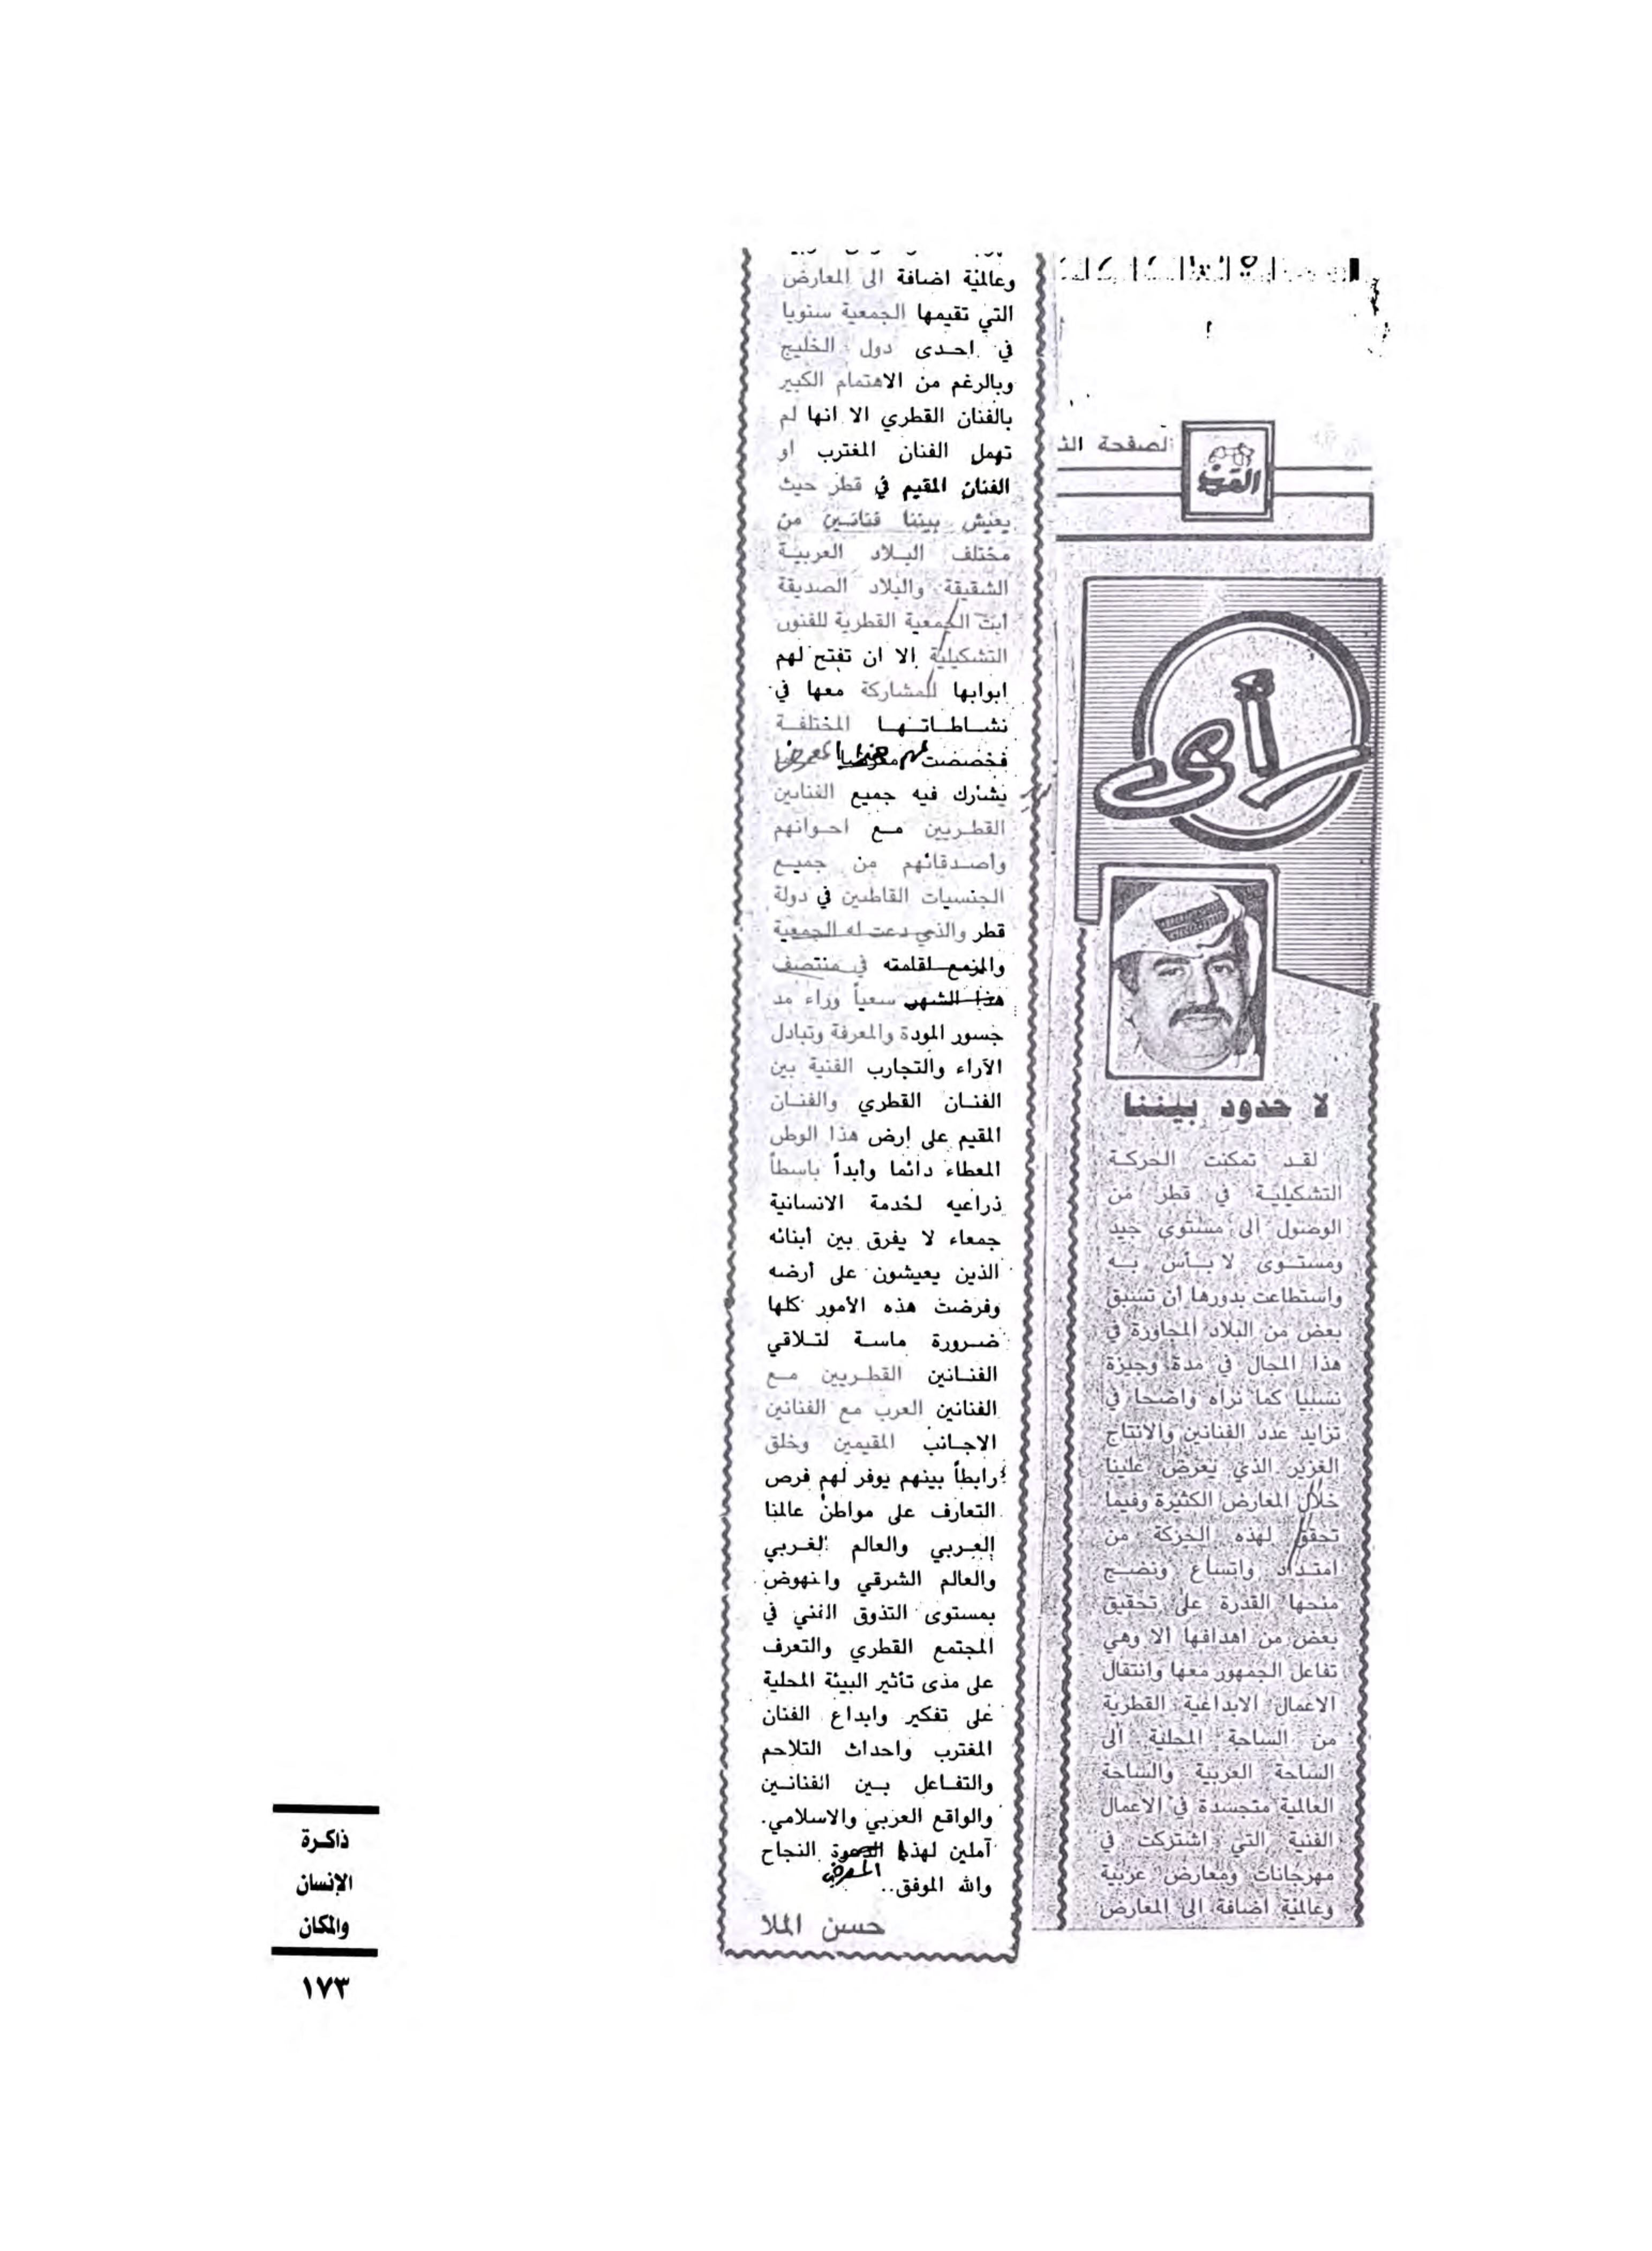 الصفحة
العرب
رأى
لا حدود بيننا
لقد تمكنت الحركة
التشكيلية في قطر من
الوصول الى مستوى جيد
ومستوى لا بأس به
واستطاعت بدورها أن تسبق
بعض من البلاد المجاورة في
هذا المجال في مدة وجيزة
نسبيا كما نراه واضحا في
تزايد عدد الفنانين والانتاج
الغزير الذي يعرض علينا
خلال المعارض الكثيرة وفيما
تحقق لهذه الحركة من
امتداد واتساع ونضج
منحها القدرة على تحقيق
بعض من اهدافها ألا وهي
تفاعل الجمهور معها وانتقال
الاعمال الابداعية القطرية
من الساحة المحلية الى
الساحة العربية والساحة
العالمية متجسدة في الاعمال
الفنية التي اشتركت في
مهرجانات ومعارض عربية
وعالمية اضافة الى المعارض
وعالمية اضافة الى المعارض
التي تقيمها الجمعية سنويا
في احدى دول الخليج
وبالرغم من الاهتمام الكبير
بالفنان القطري الا انها لم
تهمل الفنان المغترب او
الفنان المقيم في قطر حيث
يعيش بيننا فنانين من
مختلف البلاد العربية
الشقيقة والبلاد الصديقة
ابت الجمعية القطرية للفنون
التشكيلية إلا ان تفتح لهم
ابوابها للمشاركة معها في
نشاطاتها المختلفة
فخصصت لهم هذا المعرض
يشارك فيه جميع الفنانين
القطريين مع اخوانهم
وأصدقائهم من جميع
الجنسيات القاطنين في دولة
قطر والذي دعت له الجمعية
والمزمع اقامته في منتصف
هذا الشهر سعياً وراء مد
جسور المودة والمعرفة وتبادل
الآراء والتجارب الفنية بين
الفنان القطري والفنان
المقيم على ارض هذا الوطن
المعطاء دائما وأبداً باسطاً
ذراعيه لخدمة الانسانية
جمعاء لا يفرق بين أبنائه
الذين يعيشون على أرضه
وفرضت هذه الأمور كلها
ضرورة ماسة لتلاقي
الفنانين القطريين مع
الفنانين العرب مع الفنانين
الاجانب المقيمين وخلق
رابطاً بينهم يوفر لهم فرص
التعارف على مواطن عالمنا
العربي والعالم الغربي
والعالم الشرقي والنهوض
بمستوى التذوق الفني في
المجتمع القطري والتعرف
على مدى تأثير البيئة المحلية
على تفكير وابداع الفنان
المغترب واحداث التلاحم
والتفاعل بين الفنانين
والواقع العربي والاسلامي.
آملين لهذا المعرض النجاح
والله الموفق..
حسن الملا
ذاكرة
الإنسان
والمكان
١٧٣